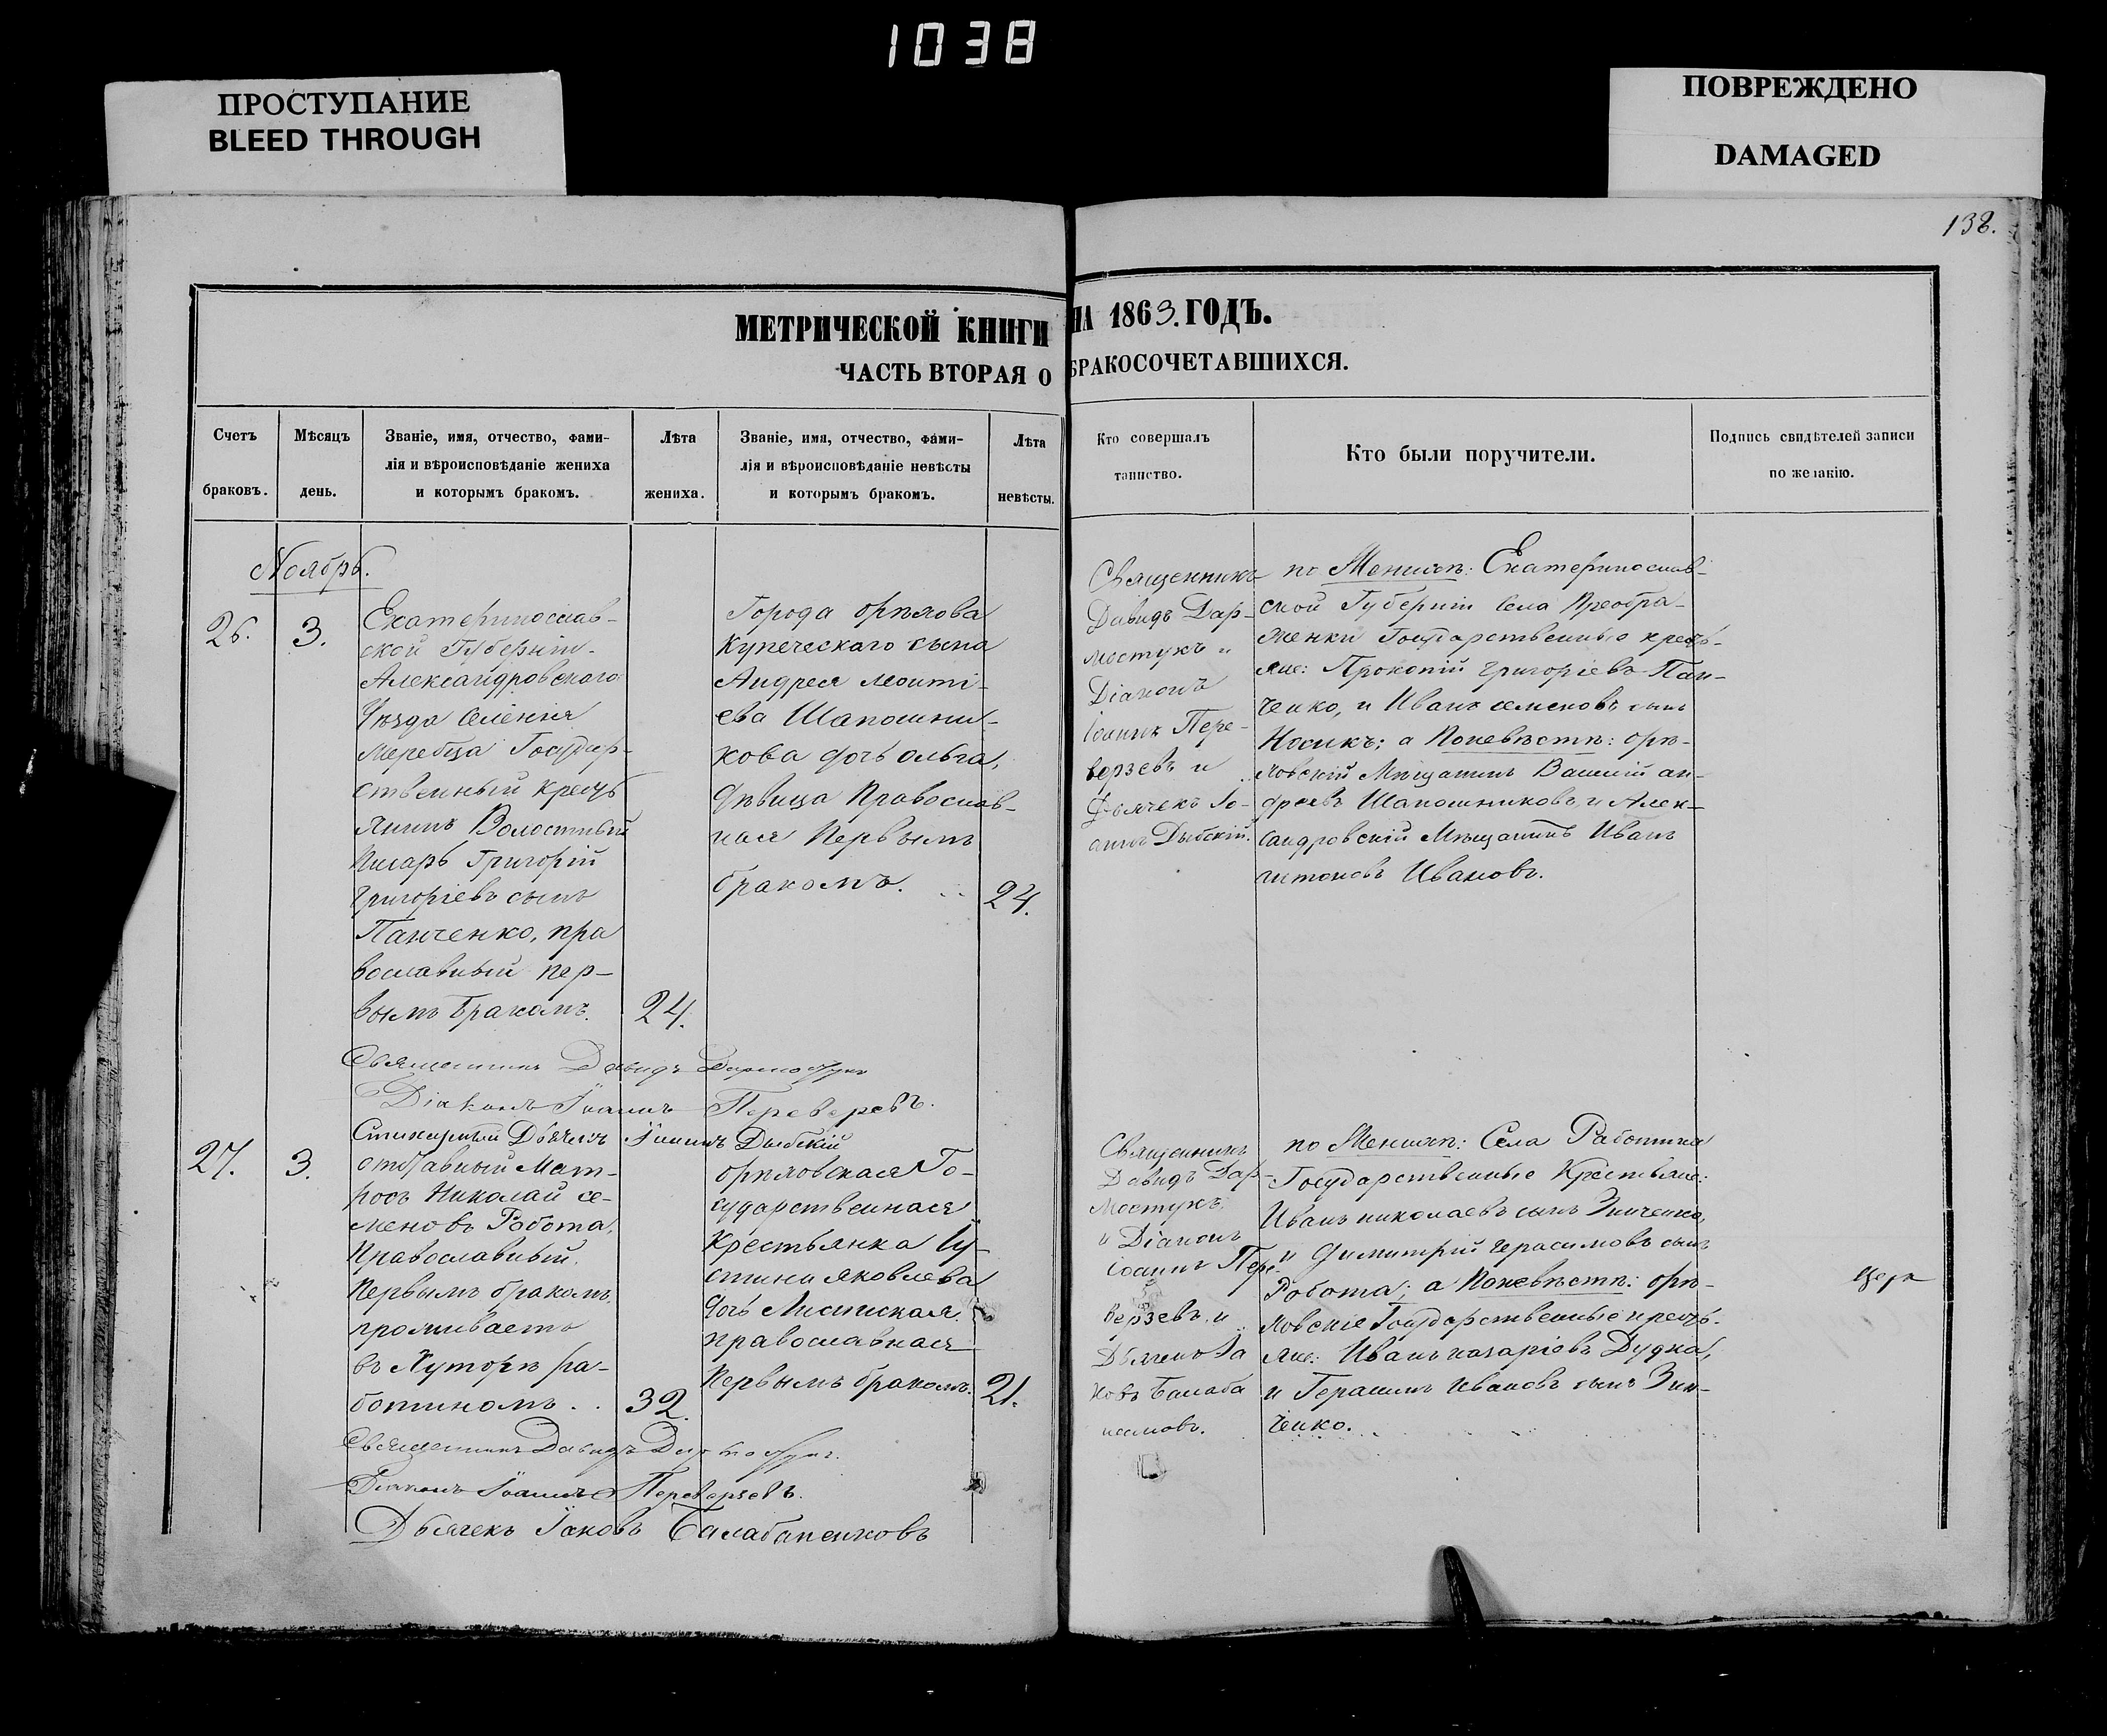 1038
ПРОСТУПАНИЕ
BLEED THROUGH
ПОВРЕЖДЕНО
DAMAGED
138.
МЕТРИЧЕСКОЙ КНИГИ НА 1863. ГОДЪ.
ЧАСТЬ ВТОРАЯ О БРАКОСОЧЕТАВШИХСЯ.
Счетъ
браковъ.
Мѣсяцъ
день.
Званіе, имя, отчество, фами-
лія и вѣроисповѣданіе жениха
и которымъ бракомъ.
Лѣта
жениха.
Званіе, имя, отчество, фами-
лія и вѣроисповѣданіе невѣсты
и которымъ бракомъ.
Лѣта
невѣсты.
Кто совершалъ
таинство.
Кто были поручители.
Подпись свидѣтелей записи
по желанію.
Ноябрь.
26.
3.
Екатеринослав-
ской Губерніи
Александровского
Уѣзда Селенія
Жеребца Государ-
ственный Кресть
янинъ Волостный
Писарь Григорій
Григоріевъ сынъ
Панченко, пра
вославный пер-
вымъ бракомъ.
24.
Города Орѣхова
Купеческаго сына
Андрея
ева Шапошни-
кова дочь Ольга,
дѣвица Православ-
ная Первымъ
бракомъ.
24.
Священникъ
Давидъ Дар-
мостукъ и
Діаконъ
Іоаннъ Пере-
верзевъ и
Дьячекъ Іо-
аннъ Дыбскій.
по Женихѣ: Екатеринослав-
ской Губерніи Села Преобра-
женки Государственные кресть-
яне: Прокопій Григоріевъ Пан-
ченко, и Иванъ Семеновъ сынъ
Носикъ; а По невѣстѣ: Орѣ-
ховскій Мѣщанинъ Василій Ан-
дреевъ Шапошниковъ, и Алек-
сандровскій Мѣщанинъ Иванъ
Антоновъ Ивановъ.
Священникъ Давидъ Дармостукъ
Діаконъ Іоаннъ Переверзевъ.
Стихарный Дьячекъ Іоаннъ Дыбскій
27.
3.
отставной Мат-
росъ Николай Се-
меновъ Робота,
Православный,
Первымъ бракомъ,
проживаетъ
въ Хуторѣ Ра-
ботиномъ . .
32.
Орѣховская Го-
сударственная
Крестьянка Іу-
стина Яковлева
дочь
православная
Первымъ бракомъ.
21.
Священникъ
Давидъ Дар-
мостукъ,
и Діаконъ
Іоаннъ Пере-
верзевъ, и
Дьячекъ Іа
ковъ Балаба
нсиковъ.
по Женихѣ: Села Работина
Государственные Крестьяне:
Иванъ Николаевъ сынъ Зинченко,
и Димитрій Герасимовъ сынъ
Робота; а По невѣстѣ: Орѣ-
ховскіе Государственные кресть-
яне: Иванъ Назаріевъ Дудка,
и Герасимъ Ивановъ сынъ Зин-
ченко.
Церк
Священникъ Давидъ Дармостукъ.
Діаконъ Іоаннъ Переверзевъ.
Дьячекъ Іаковъ Балабансиковъ